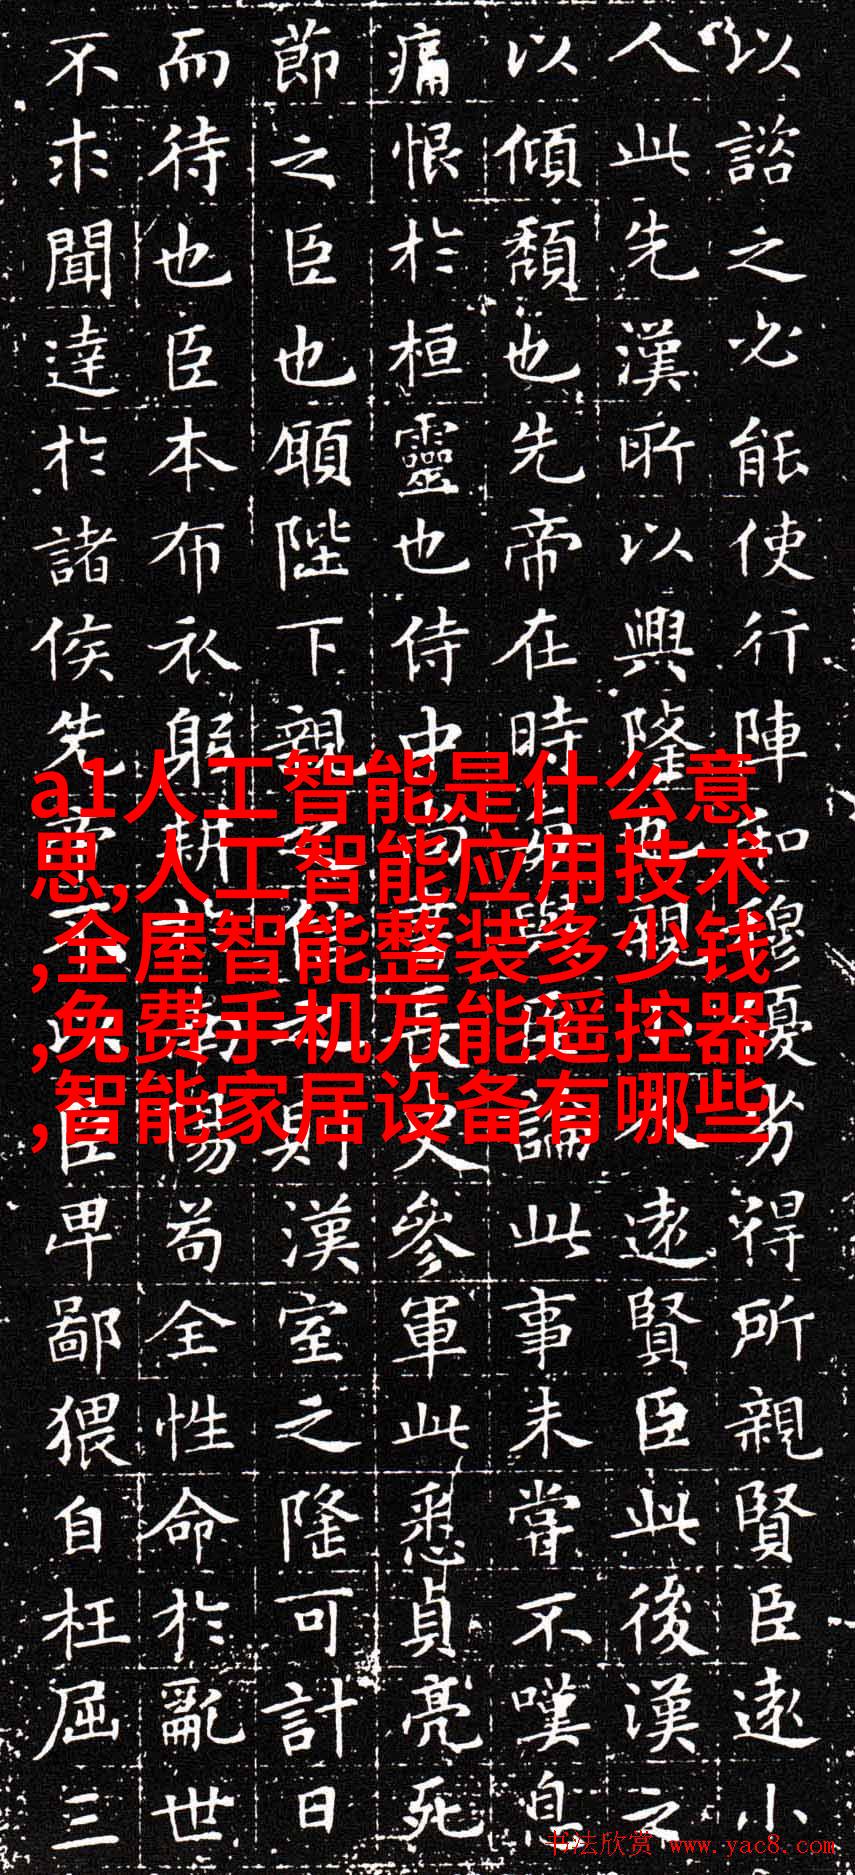 以諮之必能使行陣和穆優劣得所親賢臣遠小
人此先漢所以興隆也親小人遠賢臣此後漢之
以傾頹也先帝在時每與臣論此事未嘗不嘆息
痛恨於桓靈也侍中尚書長史參軍此悉貞亮死
節之臣也願陛下親之信之則漢室之隆可計日
而待也臣本布衣躬耕於南陽苟全性命於亂世
不求聞達於諸侯先帝不以臣卑鄙猥自枉屈三
a1人工智能是什么意
思,人工智能应用技术
,全屋智能整装多少钱
,免费手机万能遥控器
,智能家居设备有哪些
书法欣赏 www.yac8.com